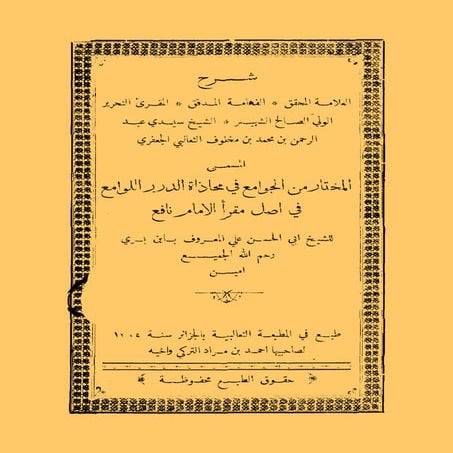 شرح
العلامة المحقق * الفهامة المدقق * المقرئ النحرير
الولي الصالح الشهير * الشيخ سيدي عبد
الرحمن بن محمد بن مخلوف الثعالبي الجعفري
المسمى
المختار من الجوامع في محاذاة الدرر اللوامع
في اصل مقرأ الامام نافع
للشيخ ابي الحسن علي المعروف بابن بري
رحم الله الجميع
امين
طبع في المطبعة الثعالبية بالجزائر سنة
لصاحبيها احمد بن مراد التركي واخيه
حقوق الطبع محفوظة